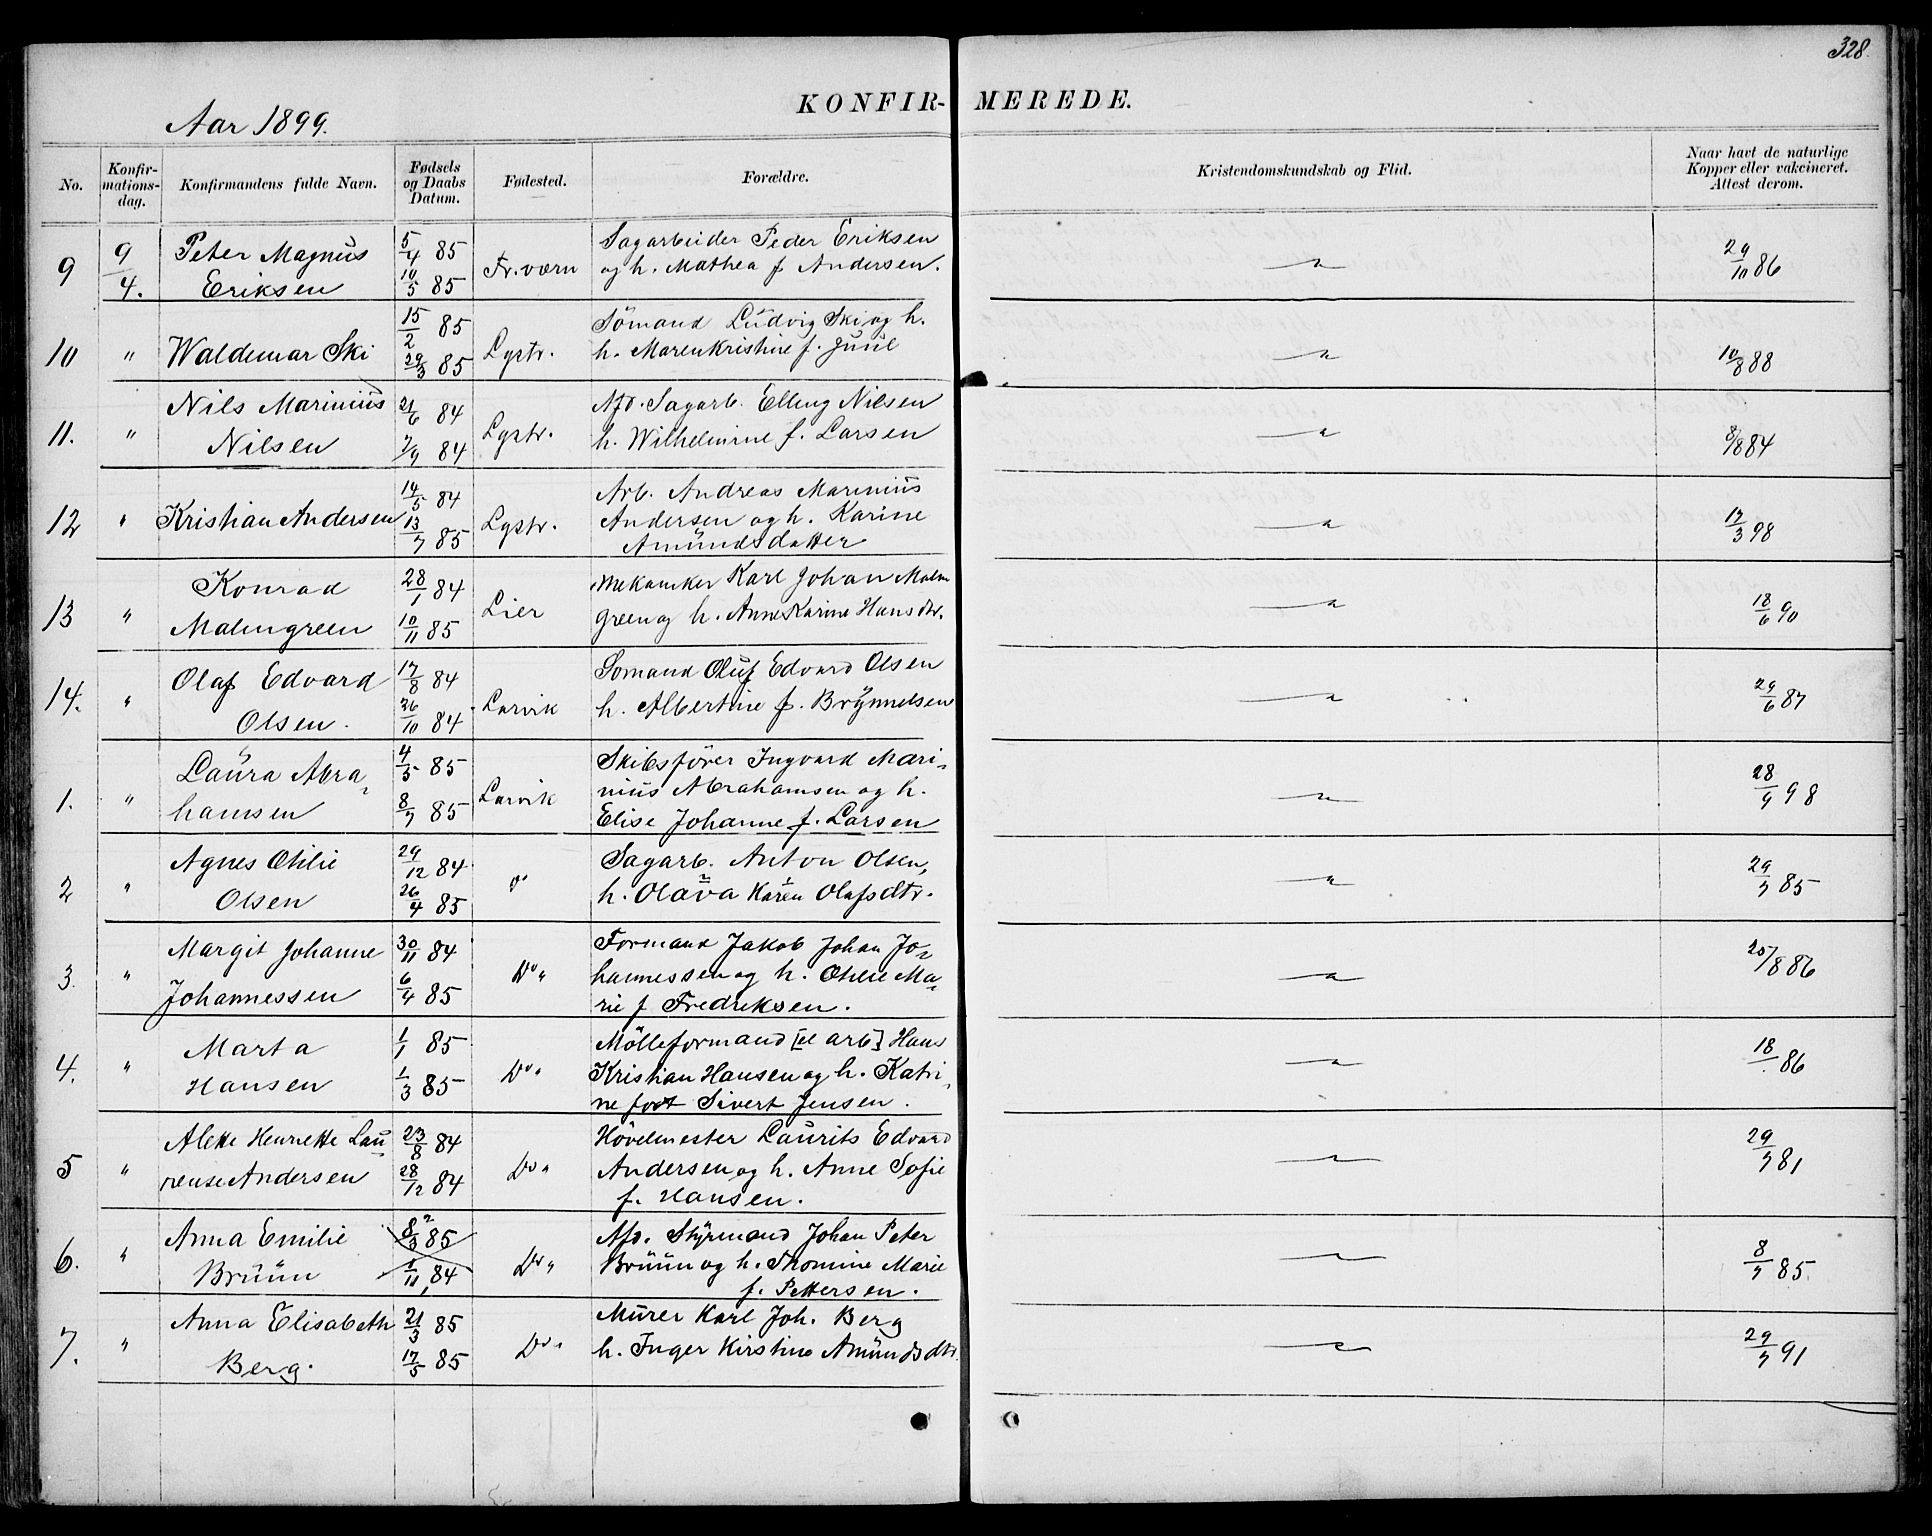 328.
KONFIR- MEREDE.
Aar 1899.
No.
Konfir-
mations-
dag.
Konfirmandens fulde Navn.
Fødsels
og Daabs
Datum.
Fødested.
Forældre.
Kristendomskundskab og Flid.
Naar havt de naturlige
Kopper eller vakcineret.
Attest derom.
9 9/4. Peter Magnus 5/4 85 Fr.værn Sagarbeider Peder Eriksen 29/10 86
Eriksen 10/5 85 og h. Mathea f Andersen.
10 " Waldemar Ski 15/2 85 Lystr. Sömand Ludvig Ski og h. 10/8 88
29/3 85 h. Maren Kristine f. Juul
11. " Nils Marinius 21/6 84 Lystr. Afd. Sagarb. Elling Nilsen 8/8 84
Nilsen 7/9 84 h. Wilhelmine f. Larsen
12 " Kristian Andersen 14/5 84 Lystr. Arb. Andreas Marinius 17/3 98
13/7 85 Andersen og h. Karine
Amundsdatter
13 " Konrad 28/1 84 Lier Mekaniker Karl Johan Malm 18/6 90
Malmgreen 10/11 85 green og h. Anne Karine Hansdtr.
14. " Olaf Edvard 17/8 84 Larvik Somand Oluf Edvard Olsen 29/6 87
Olsen. 26/10 84 h. Albertine f. Brynnelsen
1. " Laura Abra- 4/5 85 Larvik Skibsförer Ingvard Mari- 28/9 98
hamsen 8/7 85 nius Abrahamsen og h.
Elise Johanne f. Larsen
2 " Agnes Othilie 29/12 84 Sagarb. Anton Olsen, 29/7 85
Olsen 26/4 85 h. Olava Karen Olafsdtr.
3. " Margit Johanne 30/11 84 Do " Formand Jakob Johan Jo- 25/8 86
Johannessen 6/4 85 hannessen og h. Othilie Ma-
rie f Fredriksen.
4. " Marta 1/1 85 Do " Mölleformand [el arb] Hans 18/ 86
Hansen 1/3 85 Kristian Hansen og h. Katri-
ne født Sivert Jensen.
5 " Alette Henriette Lau- 23/8 84 Do " Hövelmester Laurits Edvard 29/7 81
rense Andersen 28/12 84 Andersen og h. Anne Sofie
f. Hansen.
6. " Anna Emilie 8/3 85 Do " Afd. Styrmand Johan Peter 8/7 85.
Bruun 1/11 84 Bruun og h. Thomine Marie
f. Pettersen.
7. " Anna Elisabeth 21/3 85 Do " Murer Karl Joh. Berg 29/7 91
Berg. 17/5 85 h. Inger Kirstine Amundsdtr.